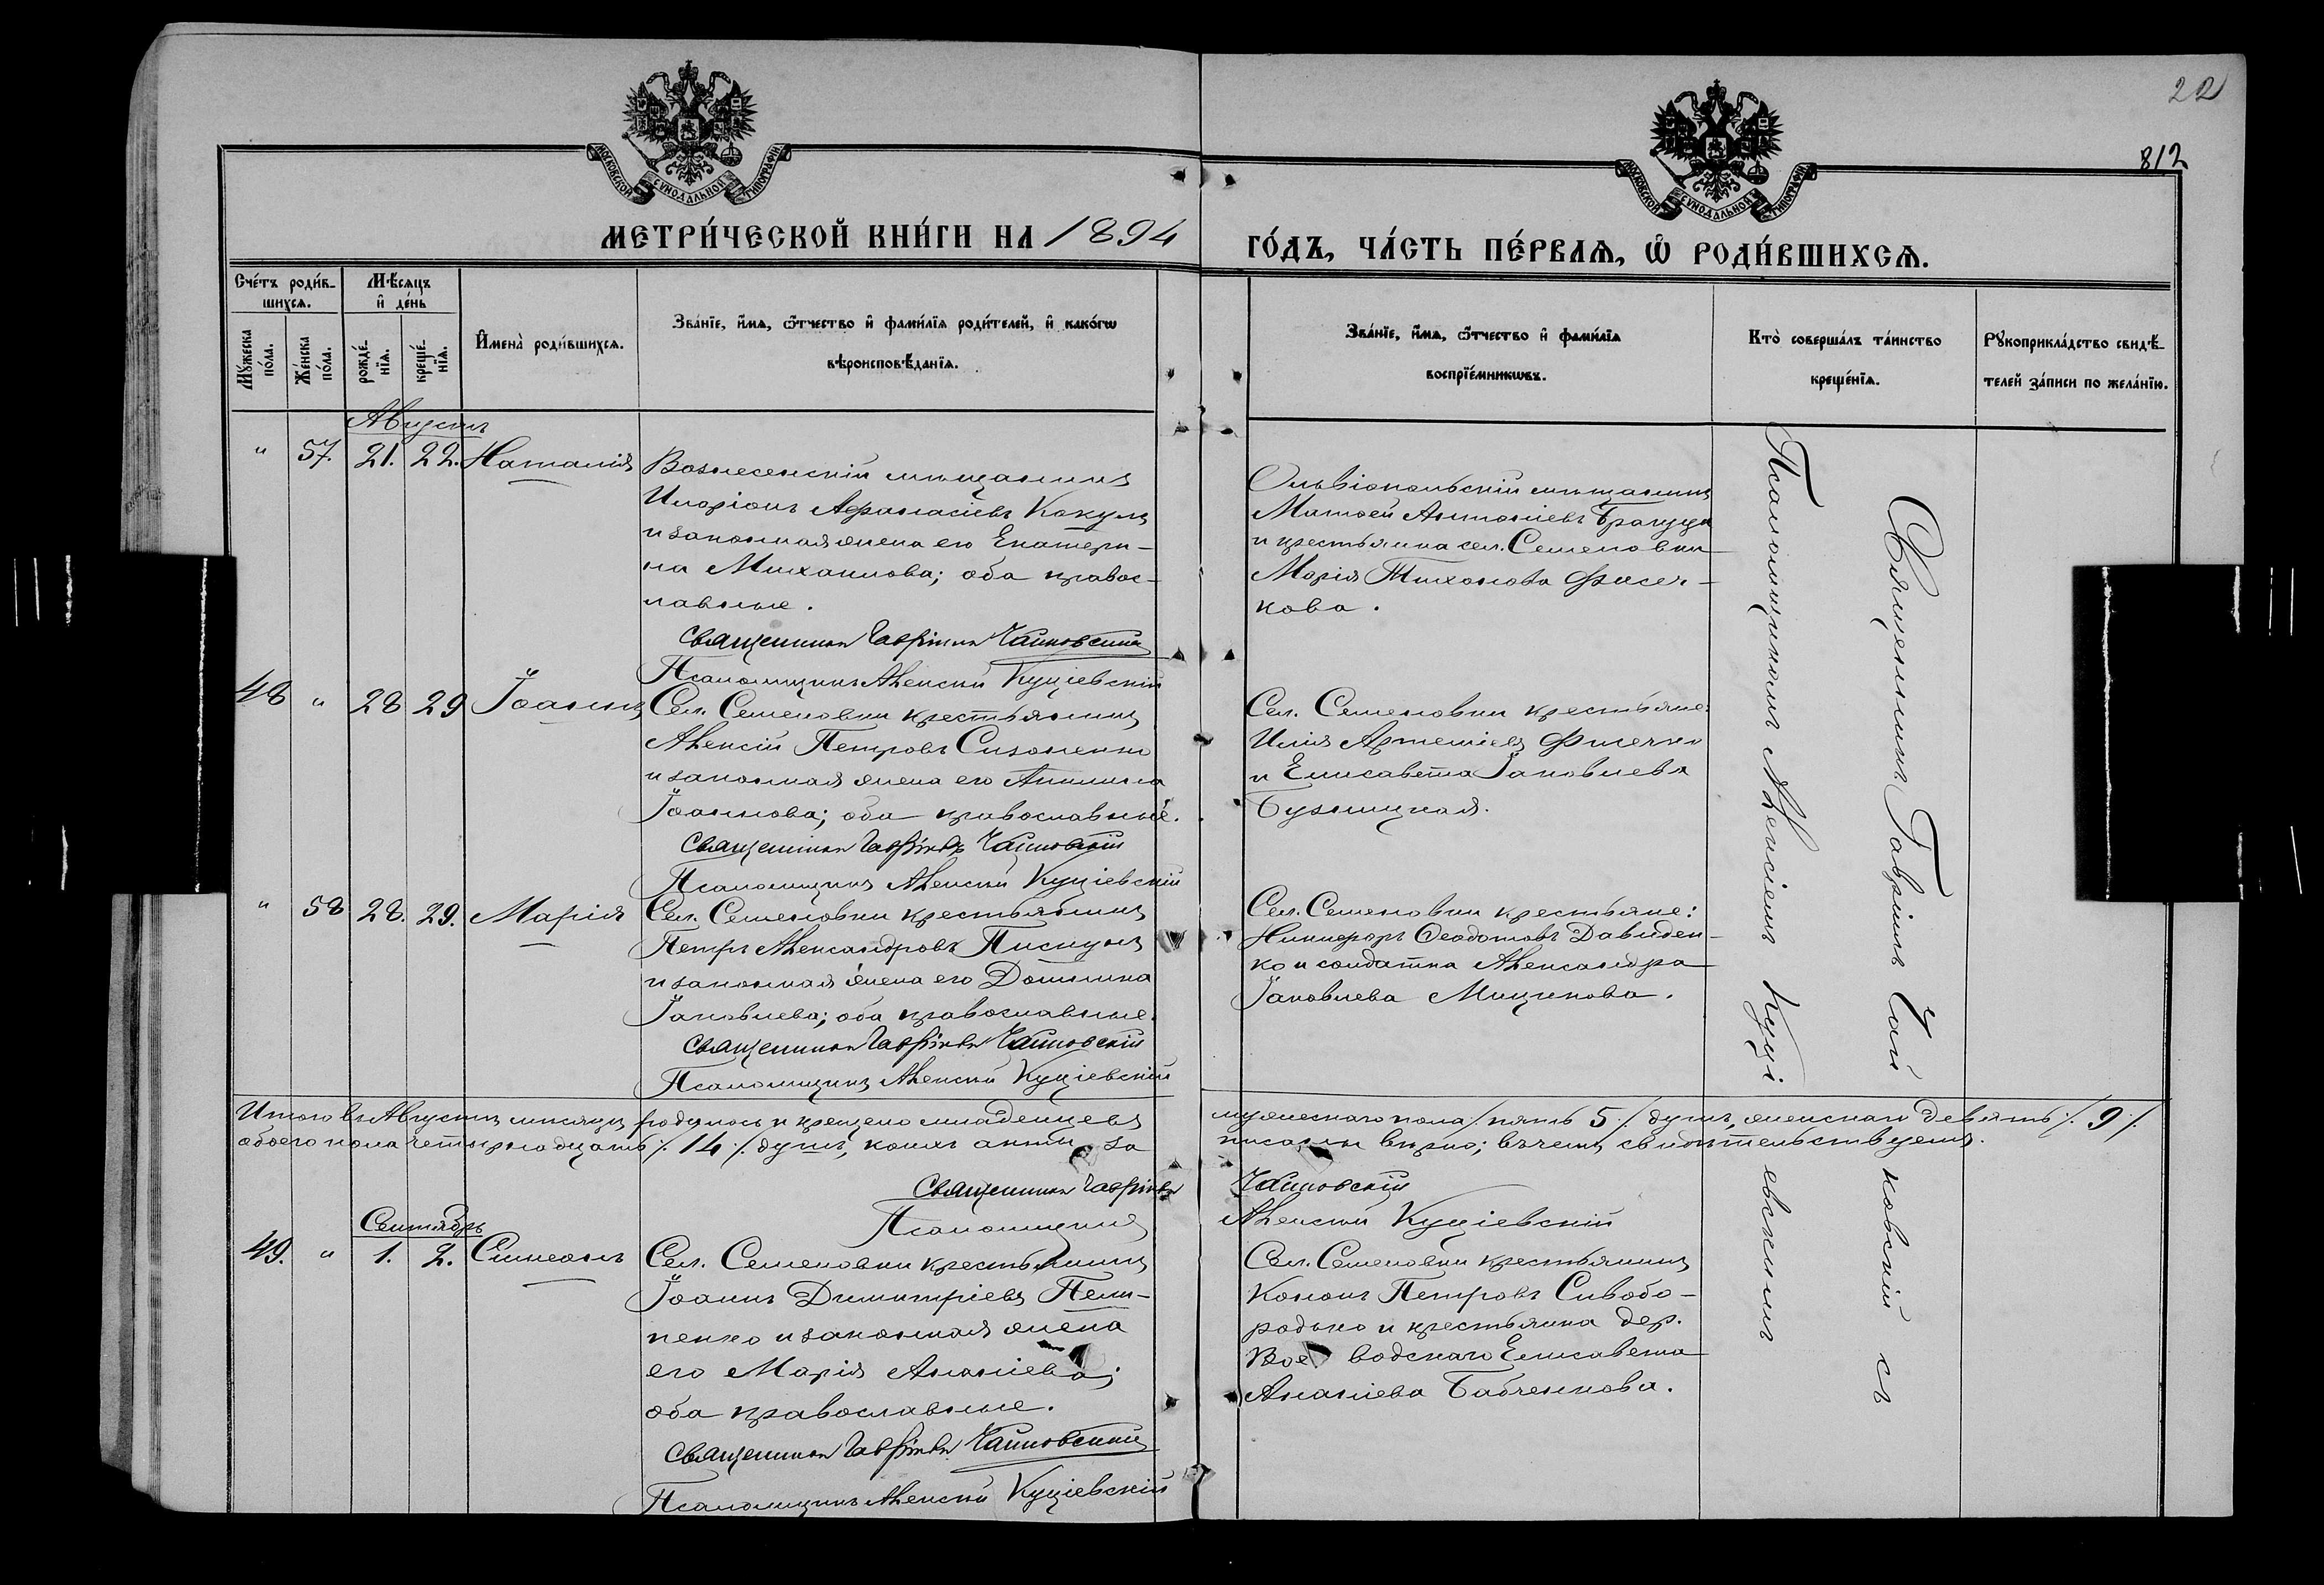 22
812
МОСКОВСКОЙ СѴНОДАЛЬНОЙ ТИПОГРАФІИ
МОСКОВСКОЙ СѴНОДАЛЬНОЙ ТИПОГРАФІИ
МЕТРИ́ЧЕСКОЙ КНИ́ГИ НА 1894
ГО́ДЪ, ЧА́СТЬ ПЕ́РВАѦ, Ѡ РОДИ́ВШИХСѦ.
Сче́тъ роди́в-
шихсѧ.
Мѣ́сѧцъ
и҆ де́нь
Мꙋ́жеска
по́ла.
Же́нска
по́ла.
рожде́-
нїѧ.
креще́-
нїѧ.
И҆мена̀ роди́вшихсѧ.
Зва́нїе, и҆́мѧ, ѻ҆́тчество и҆ фами́лїѧ роди́телей, и҆ како́гѡ
вѣроисповѣ́данїѧ.
Зва́нїе, и҆́мѧ, ѻ҆́тчество и҆ фами́лїѧ
воспрїе́мникѡвъ.
Кто̀ соверша́лъ та́инство
креще́нїѧ.
Рꙋкоприкла́дство свидѣ́-
телей за́писи по жела́нїю.
Августъ
" 57. 21. 22. Наталія
Вознесенскій мѣщанинъ
Иларіонъ Афанасіевъ Кокулъ
и законная жена его Екатери-
на Михаилова; оба правос-
лавные.
Священникъ Гавріилъ Чайковскій
Псаломщикъ Алексій Куціевскій
Ольвіопольскій мѣщанинъ
Матѳей Антоніевъ
и крестьянка сел. Семеновки
Марія Тихонова Фисен-
кова.
48 " 28 29 Іоаннъ
Сел. Семеновки крестьянинъ
Алексій Петровъ Сизоненко
и законная жена его Акилина
Іоаннова; оба православные.
Священникъ Гавріилъ Чайковскій
Псаломщикъ Алексій Куціевскій
Сел. Семеновки крестьяне:
Илія Артеміевъ
и Елисавета Іаковлева
Бузницкая.
" 58 28. 29. Марія
Сел. Семеновки крестьянинъ
Петръ Александровъ Пискунъ
и законная жена его Домникa
Іаковлева; оба православные.
Священникъ Гавріилъ Чайковскій
Псаломщикъ Алексій Куціевскій
Сел. Семеновки крестьяне:
Никифоръ Ѳеодотовъ Давиден-
ко и солдатка Александра
Іаковлева Мищенкова.
Итого въ Августѣ мѣсяцѣ родилось и крещено младенцевъ
обоего пола четырнадцать /. 14 /. душъ, коихъ акты за
мужескаго пола /. пять 5 /. душъ, женскаго девять /. 9 /.
писаны вѣрно; въ чемъ свидѣтельствуемъ.
Священникъ Гавріилъ Чайковскій
Псаломщикъ Алексій Куціевскій
Сентябрь
49. " 1. 2. Симеонъ
Сел. Семеновки крестьянинъ
Іоаннъ Димитріевъ Пели-
пенко и законная жена
его Марія Ананіева;
оба православные.
Священникъ Гавріилъ Чайковскій
Псаломщикъ Алексій Куціевскій
Сел. Семеновки крестьянинъ
Кононъ Петровъ Сивобо-
родько и крестьянка дер.
Воеводскаго Елисавета
Ананіева Бабченкова.
Священникъ Гавріилъ Чайковскій съ
Псаломщикомъ Алексіемъ Куціевскимъ